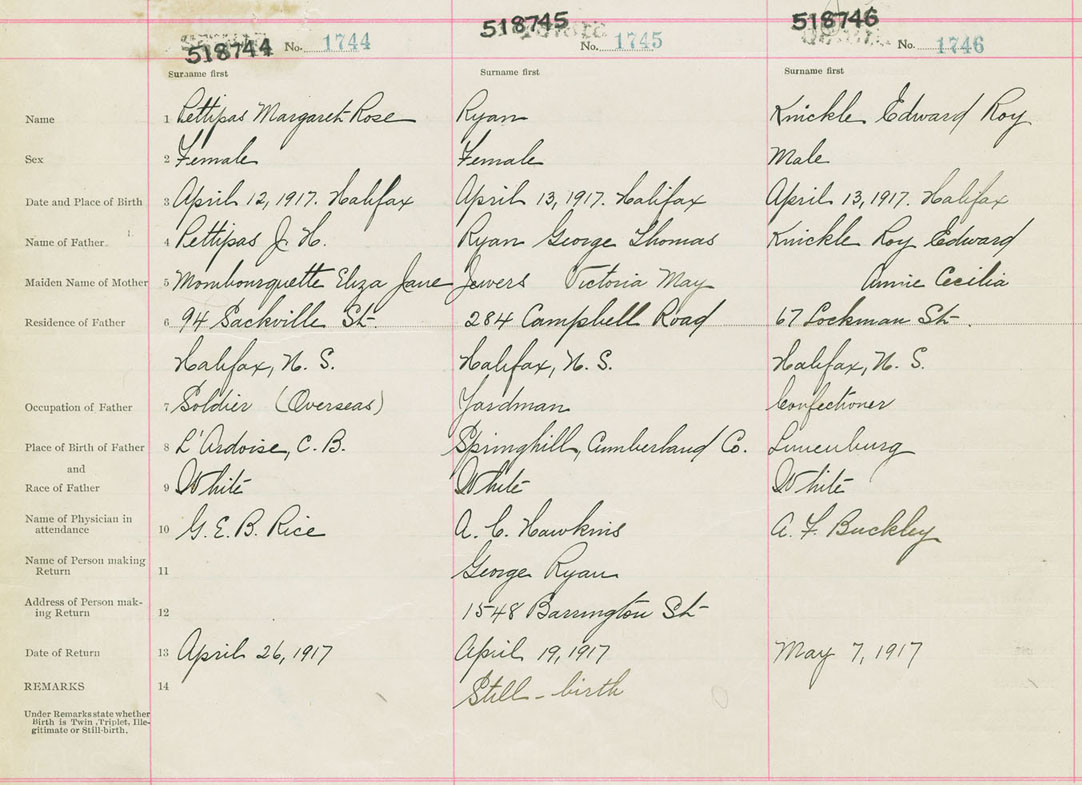 518744 No. 1744 518745 No. 1745 518746 No. 1746
Surname first Surname first Surname first
Name 1 Pettipas Margaret Rose Ryan Knickle Edward Roy
Sex 2 Female Female Male
Date and Place of Birth 3 April 12, 1917. Halifax April 13, 1917. Halifax April 13, 1917. Halifax
Name of Father 4 Pettipas J. H. Ryan George Thomas Knickle Roy Edward
Maiden Name of Mother 5 Mombourquette Eliza Jane Jewers Victoria May Annie Cecilia
Residence of Father 6 94 Sackville St. 284 Campbell Road 67 Lockman St.
Halifax, N. S. Halifax, N. S. Halifax, N. S.
Occupation of Father 7 Soldier (Overseas) Yardman Confectioner
Place of Birth of Father 8 L'Ardoise, C. B. Springhill, Cumberland Co. Lunenburg
and
Race of Father 9 White White White
Name of Physician in
attendance 10 G. E. B. Rice A. C. Hawkins A. F. Buckley
Name of Person making
Return 11 George Ryan
Address of Person mak-
ing Return 12 1548 Barrington St.
Date of Return 13 April 26, 1917 April 19, 1917 May 7, 1917
REMARKS 14 Still-birth
Under Remarks state whether
Birth is Twin, Triplet, Ille-
gitimate or Still-birth.